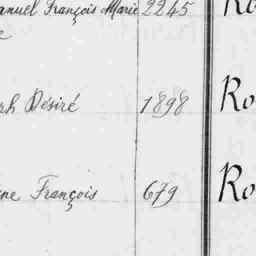 anuel François Marie 2245 Ro
e
ph Désiré 1898 Ro
ne François 679 Ro